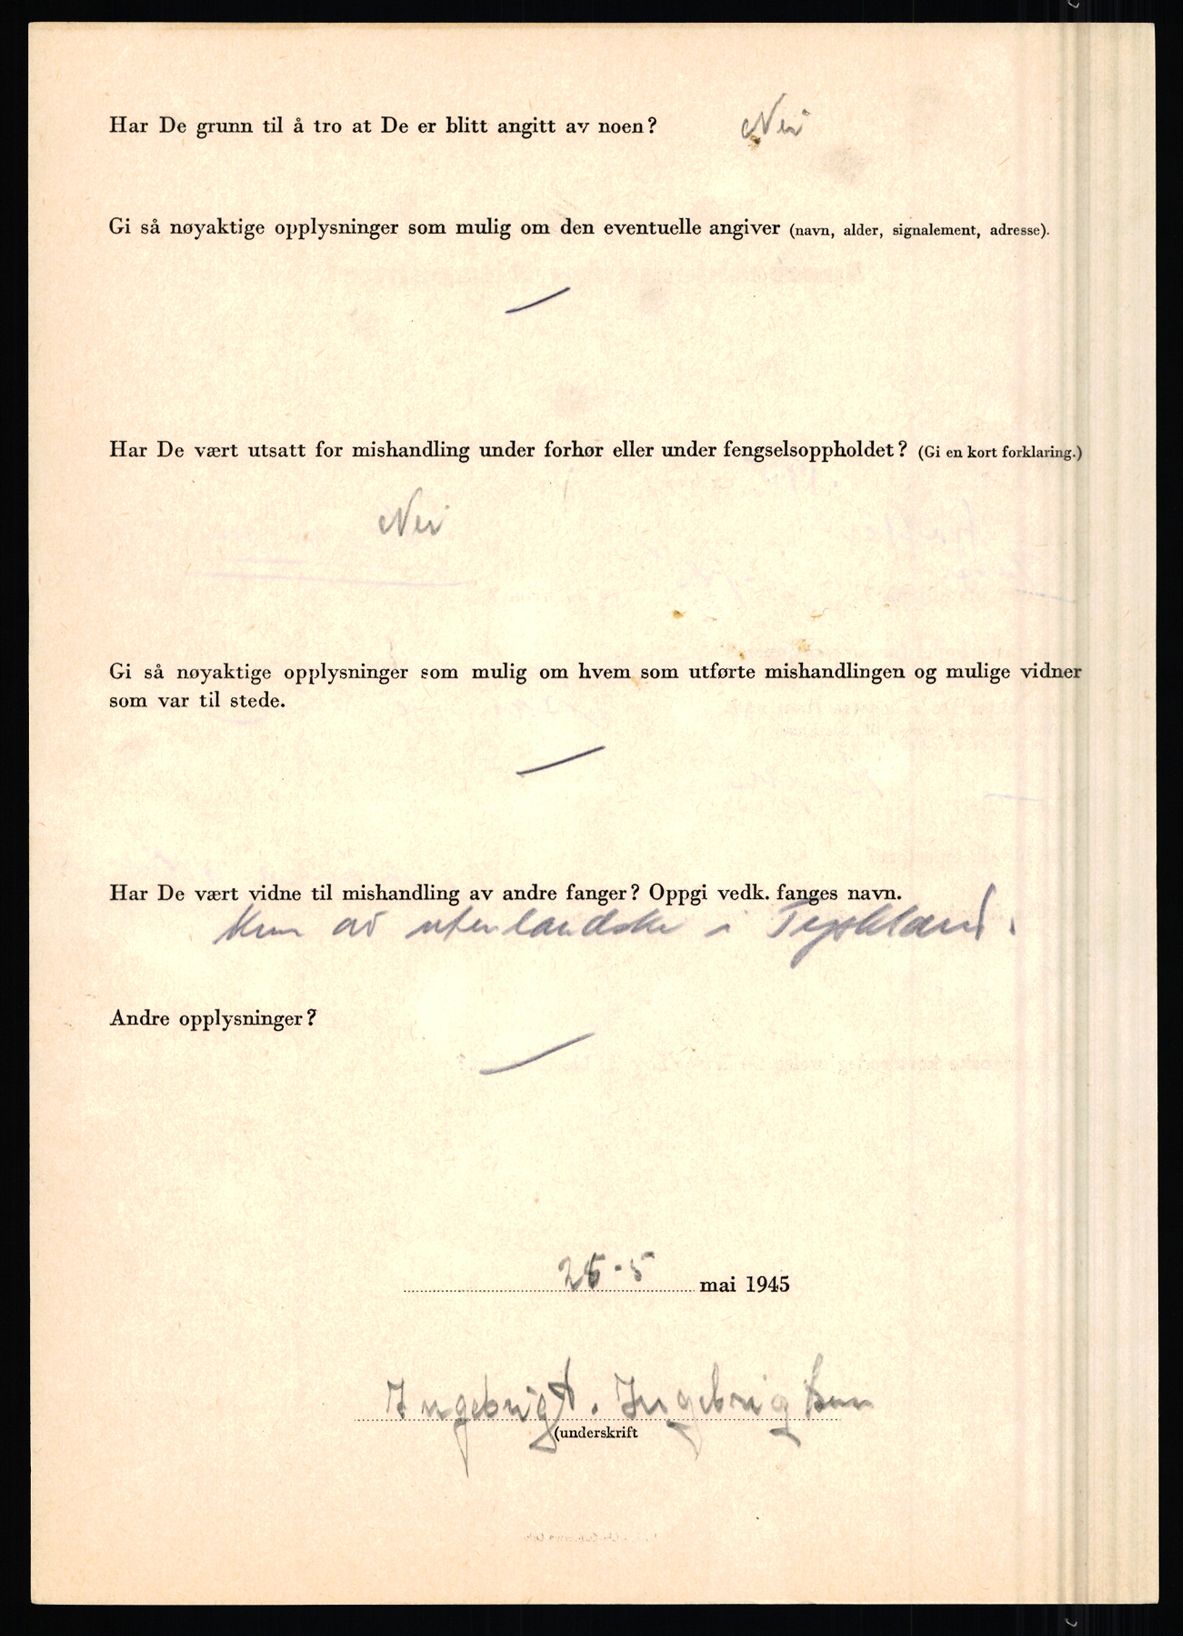 Har De grunn til å tro at De er blitt angitt av noen? Nei
Gi så nøyaktige opplysninger som mulig om den eventuelle angiver (navn, alder, signalement, adresse).
—
Har De vært utsatt for mishandling under forhør eller under fengselsoppholdet? (Gi en kort forklaring.)
Nei
Gi så nøyaktige opplysninger som mulig om hvem som utførte mishandlingen og mulige vidner
som var til stede.
—
Har De vært vidne til mishandling av andre fanger? Oppgi vedk. fanges navn.
Kun av utenlandske i Tyskland.
Andre opplysninger?
—
25-5 mai 1945
Ingebrigt. Ingebrigtsen
(underskrift